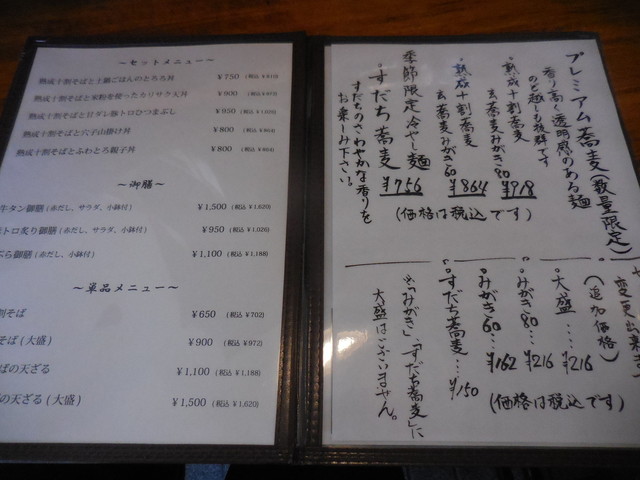 ～セットメニュー～
熟成十割そばと土鍋ごはんのとろろ丼 ￥750 (税込 ￥810)
熟成十割そばと米粉を使ったカリサク天丼 ￥900 (税込 ￥972)
熟成十割そばと甘ダレ豚トロひつまぶし ￥950 (税込 ￥1,026)
熟成十割そばと穴子山掛け丼 ￥800 (税込 ￥864)
熟成十割そばとふわとろ親子丼 ￥800 (税込 ￥864)
～御膳～
牛タン御膳 (赤だし、サラダ、小鉢付) ￥1,500 (税込 ￥1,620)
トロ炙り御膳 (赤だし、サラダ、小鉢付) ￥950 (税込 ￥1,026)
ぷら御膳 (赤だし、小鉢付) ￥1,100 (税込 ￥1,188)
～単品メニュー～
割そば ￥650 (税込 ￥702)
そば (大盛) ￥900 (税込 ￥972)
ばの天ざる ￥1,100 (税込 ￥1,188)
の天ざる (大盛) ￥1,500 (税込 ￥1,620)
プレミアム蕎麦(数量限定)
香り高く透明感のある麺
のど越しも抜群です。
・熟成十割蕎麦
玄蕎麦みがき80 ¥918
・熟成十割蕎麦
玄蕎麦みがき60 ¥864
季節限定冷やし麺
・すだち蕎麦 ¥756
すだちのさわやかな香りを
お楽しみ下さい。
(価格は税込です)
変更出来
(追加価格)
・大盛‥‥ ¥216
・みがき80‥ ¥216
・みがき60‥ ¥162
・すだち蕎麦‥ ¥150
※「みがき」「すだち蕎麦」に
大盛はございません。
(価格は税込です)